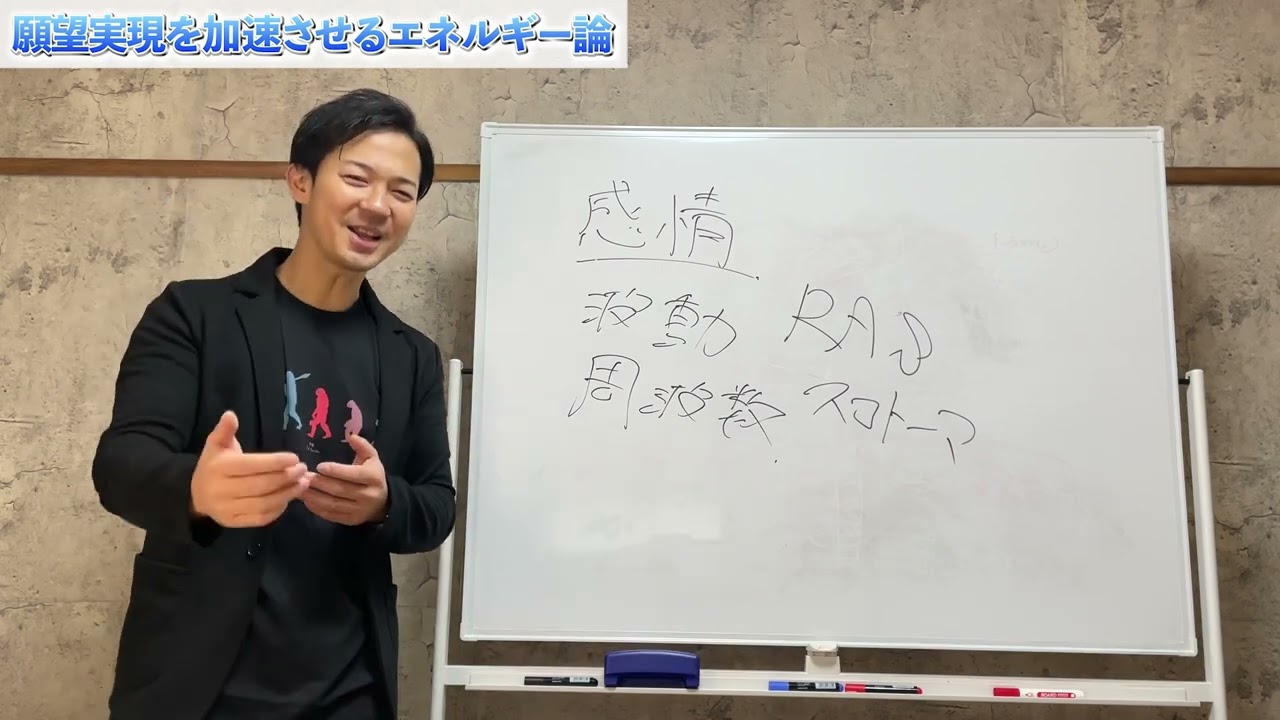 願望実現を加速させるエネルギー論
感情
波動 RAS
周波数 スコトーマ
BOARD